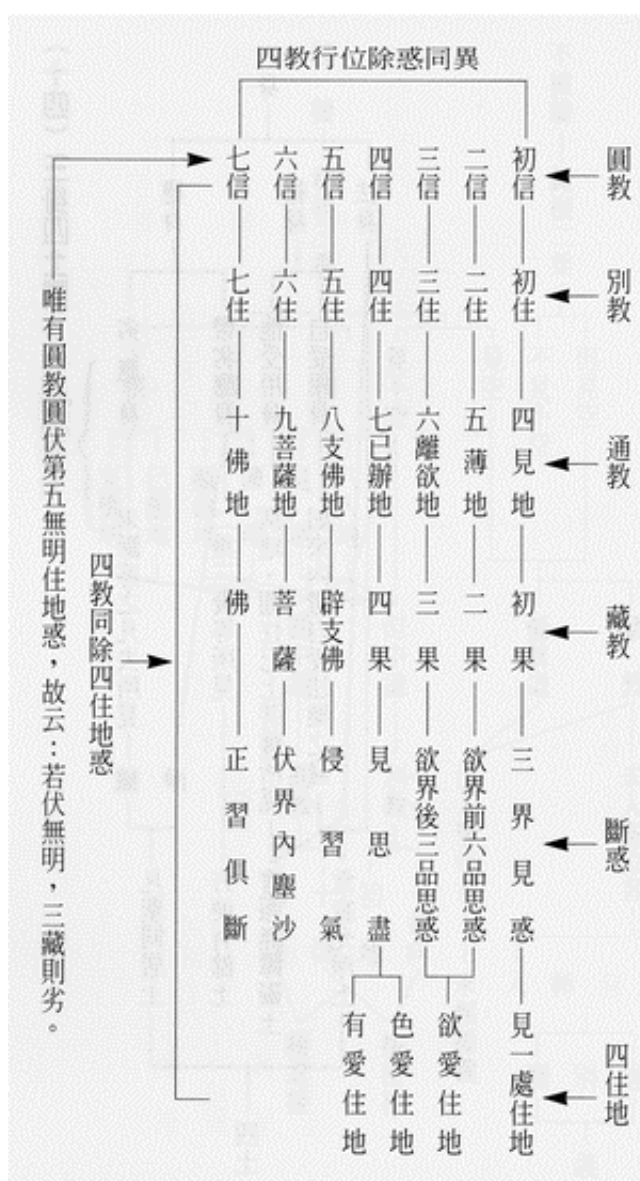 四教行位除惑同異
圓教
別教
通教
藏教
斷惑
四住地
初信
初住
四見地
初果
三界見惑
見一處住地
二信
二住
五薄地
二果
欲界前六品思惑
三信
三住
六離欲地
三果
欲界後三品思惑
欲愛住地
四信
四住
七已辦地
四果
見思盡
色愛住地
有愛住地
五信
五住
八支佛地
辟支佛
侵習氣
六信
六住
九菩薩地
菩薩
伏界內塵沙
七信
七住
十佛地
佛
正習俱斷
四教同除四住地惑
唯有圓教圓伏第五無明住地惑，故云：若伏無明，三藏則劣。